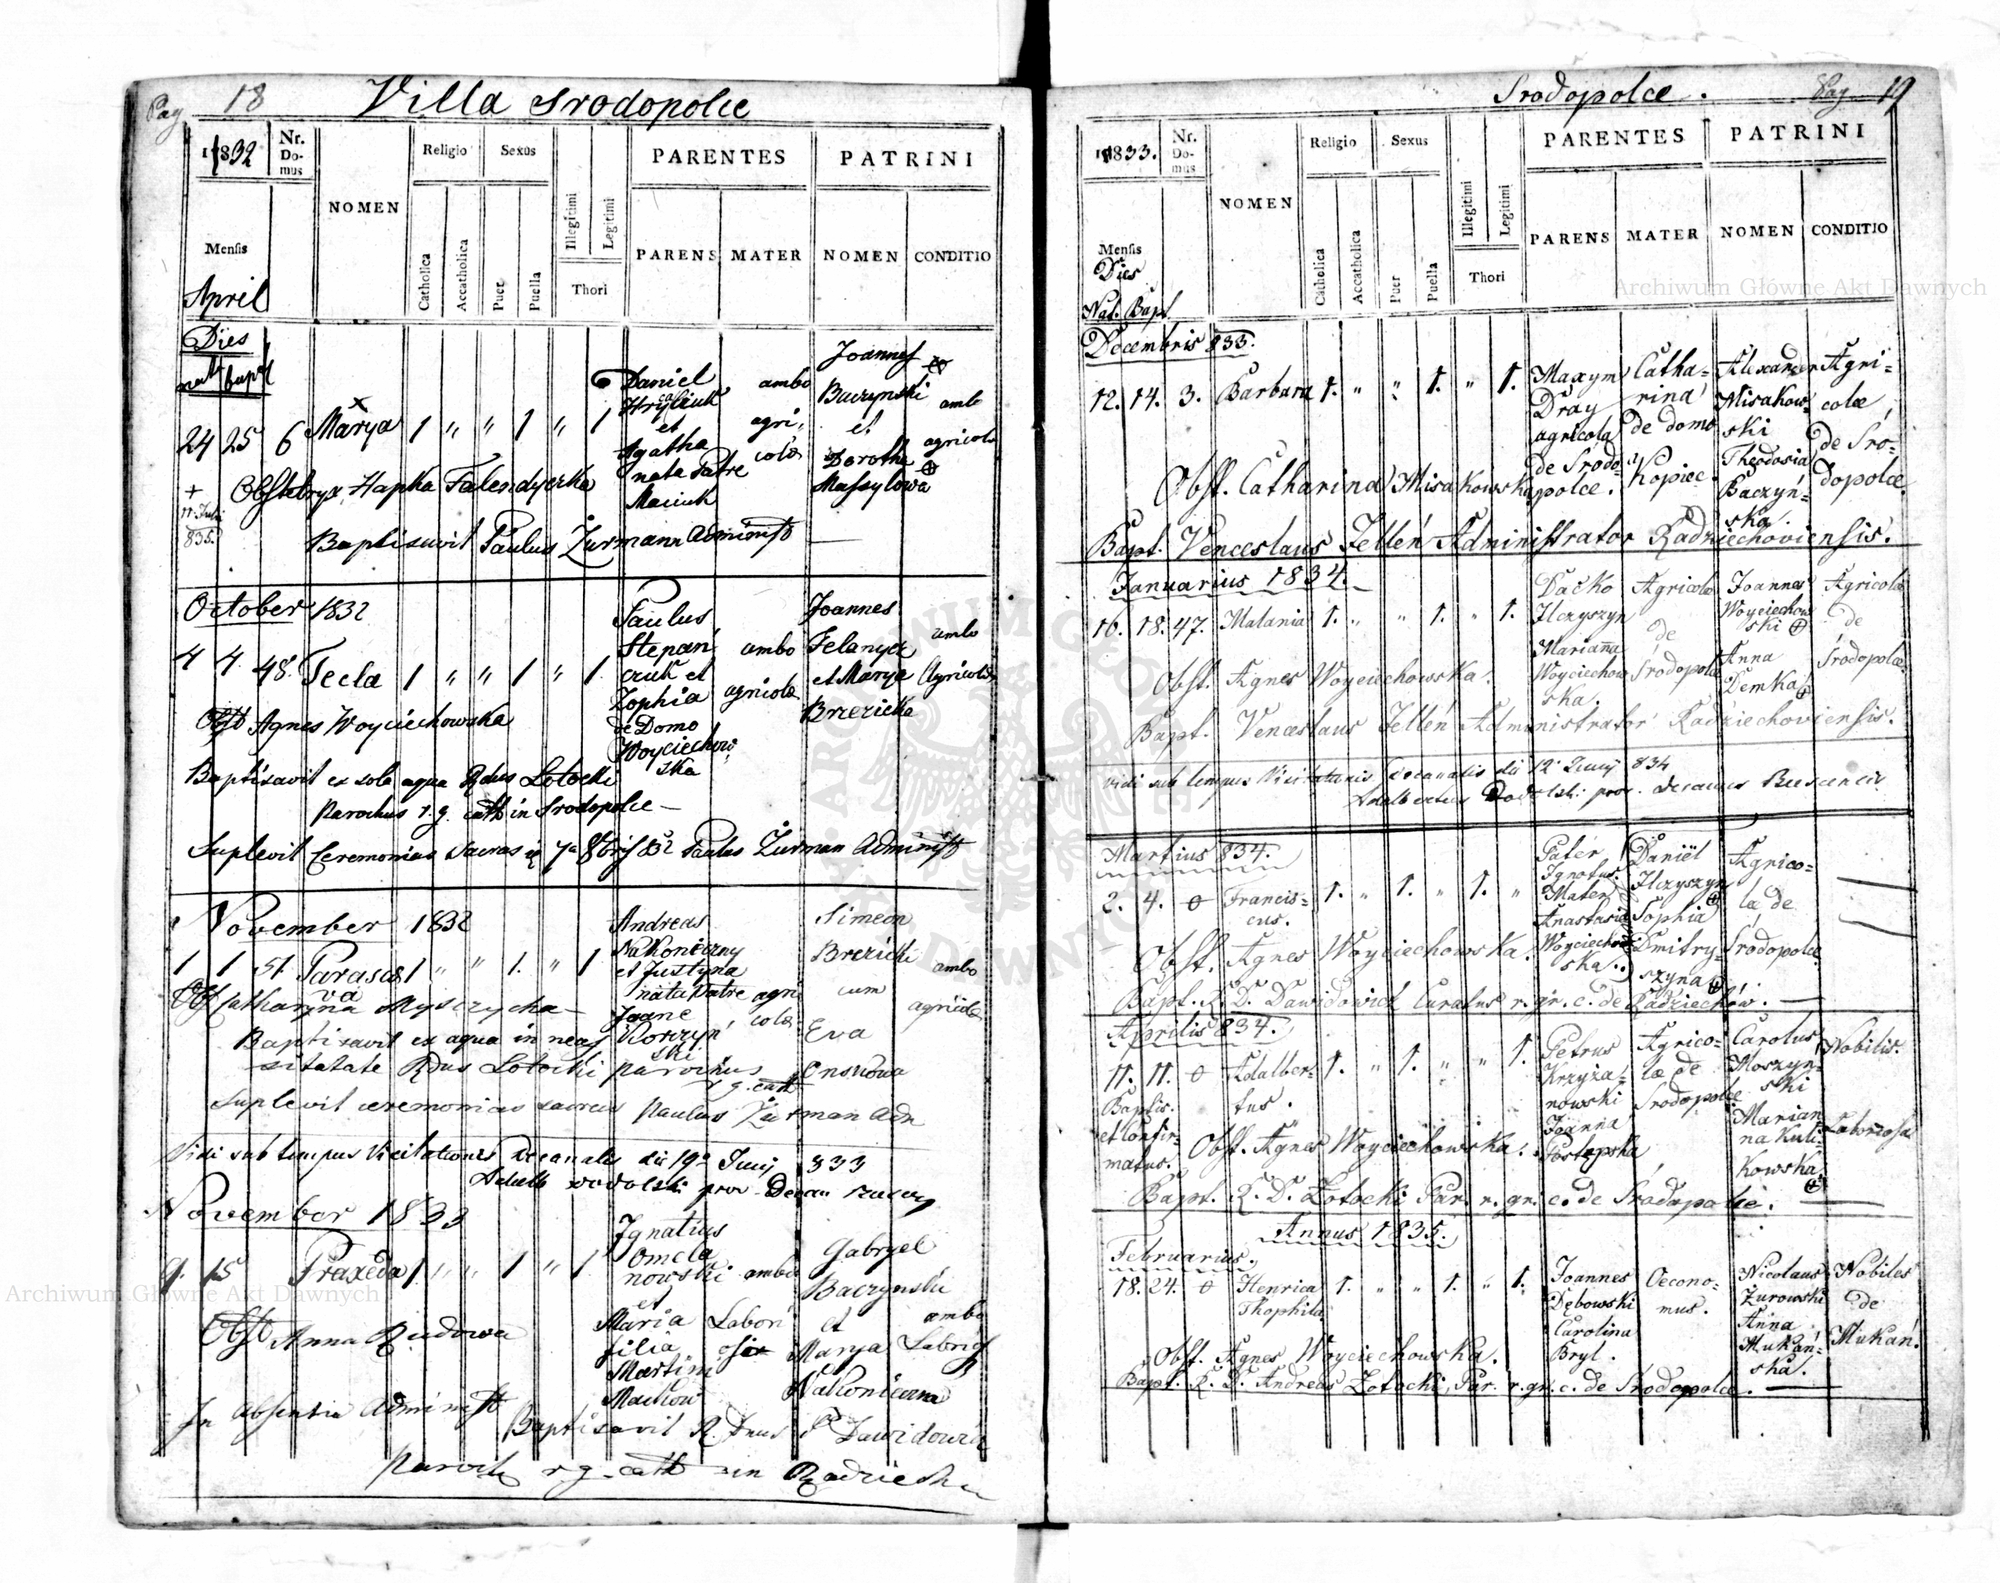 Pag 18 Villa Srodopolce
1832
Nr. Domus
NOMEN
Religio
Sexûs
PARENTES
PATRINI
Mensis
Catholica
Accatholica
Puer
Puella
Illegitimi
Legitimi
Thori
PARENS
MATER
NOMEN
CONDITIO
April
Dies
nati bapt
24 25 6 Marya 1 " " 1 " 1
Daniel
et
Agatha
nata Patre
Maciuk
ambo
agri
colæ
Joannes
Baczynski
et
Dorotha
Massylowa
ambo
agricolæ
Obstetryx Hapka Falendyczka
+
11 Julii
835.
Baptisavit Paulus Zurmann Administ
October 1832
4 4 48. Tecla 1 " " 1 " 1
Paulus
Stepań
czuk et
Zophia
de Domo
Woyciechow
ska
ambo
agricolæ
Joannes
Felanycz
et Marya
Brzezicka
ambo
Agricolæ
Obst Agnes Woyciechowska
Baptisavit ex sola aqua Rdus Lotocki
Parochus r. g. cath in Srodopolce
Suplevit Ceremonias Sacras 7a 8bris 832 Paulus Zurman Administ
November 1832
1 1 51. Parasce 1 " " 1. " 1
va
Andreas
Nakonieczny
et Justyna
nata Patre
Joane
Korczyń
ski
agri
colæ
Simeon
Brzezicki
cum
Eva
ambo
agricolæ
Obst Catharyna Myszczycha
Baptisavit ex aqua in neces
sitatate Rdus Lotocki parochus
r g. cath
Suplevit ceremonias sacras Paulus Zurman Adm
Vidi sub tempus Visitationis Decanalis die 19a Junij 833
November 1833
9. 15 Praxeda 1 " " 1 " 1
Ignatius
Omela
nowski
et
Maria
filia
Martini
Machow
ambo
Labori
osi
Gabryel
Baczynski
et
Marya
Nakonieczna
ambo
Obst Anna Rudowa
In absentia Administ
Baptisavit R. Dnus P Dawidowicz
Paroch r. g. cath in Radziech
Srodopolce. Pag 19
1833.
Nr. Domus
NOMEN
Religio
Sexus
PARENTES
PATRINI
Mensis
Dies
Nat. Bapt.
Catholica
Accatholica
Puer
Puella
Illegitimi
Legitimi
Thori
PARENS
MATER
NOMEN
CONDITIO
Decembris 833.
12. 14. 3. Barbara 1. " " 1. " 1.
Maxym
Dray
agricola
de Srodo=
polce.
Catha=
rina
de domo
Kopiec
Alexander
Misakow=
ski
Theodosia
Baczyń=
ska.
Agri=
colæ
de Sro=
dopolce.
Obst. Catharina Misakowska
Bapt. Venceslaus Jellén Administrator Radziechoviensis.
Januarius 1834.
16. 18. 47. Malania 1. " " 1. " 1.
Dacko
Ilczyszyn
Marianna
Woyciechow
ska.
Agricolæ
de
Srodopolce
Joannes
Woyciechow
ski
Anna
Demka
Agricolæ
de
Srodopolce.
Obst. Agnes Woyciechowska.
Bapt. Venceslaus Jellén Administrator Radziechoviensis.
Vidi sub tempus Visitationis Decanalis die 12 Junij 834
Martius 834.
2. 4. 0 Francis= 1. " 1. " 1. "
cus.
Pater
Ignotus.
Mater
Anastasia
Woyciechow
ska.
Daniël
Ilczyszyn
Sophia
Dmitry=
szyna
Agrico=
la de
Srodopolce
Obst. Agnes Woyciechowska.
Bapt. R. D. Dawidowicz Curatus r. gr. c. de Radziechów.
Aprilis 834.
11. 11. 0 Adalber= 1. " 1. " " 1.
tus.
Baptis.
et Confir=
matus.
Petrus
Krzyża=
nowski
Joanna
Postępska
Agrico=
læ de
Srodopolce
Carolus
Moszyn=
ski
Marian
na Kuli
kowska.
Nobilis.
Laboriosa
Obst. Agnes Woyciechowska.
Bapt. R. D. Lotocki Par. r. gr. c. de Srodopolce.
Annus 1835.
Februarius.
18. 24. 0 Henrica 1. " " 1. " 1.
Thophila
Joannes
Dębowski
Carolina
Bryl.
Oecono=
mus.
Nicolaus
Zurowski
Anna
Mukań=
ska.
Nobiles
de
Mukań.
Obst. Agnes Woyciechowska.
Bapt. R. D. Andreas Lotocki, Par. r. gr. c. de Srodopolce.
Archiwum Główne Akt Dawnych
Archiwum Główne Akt Dawnych
ARCHIWUM GŁÓWNE AKT DAWNYCH